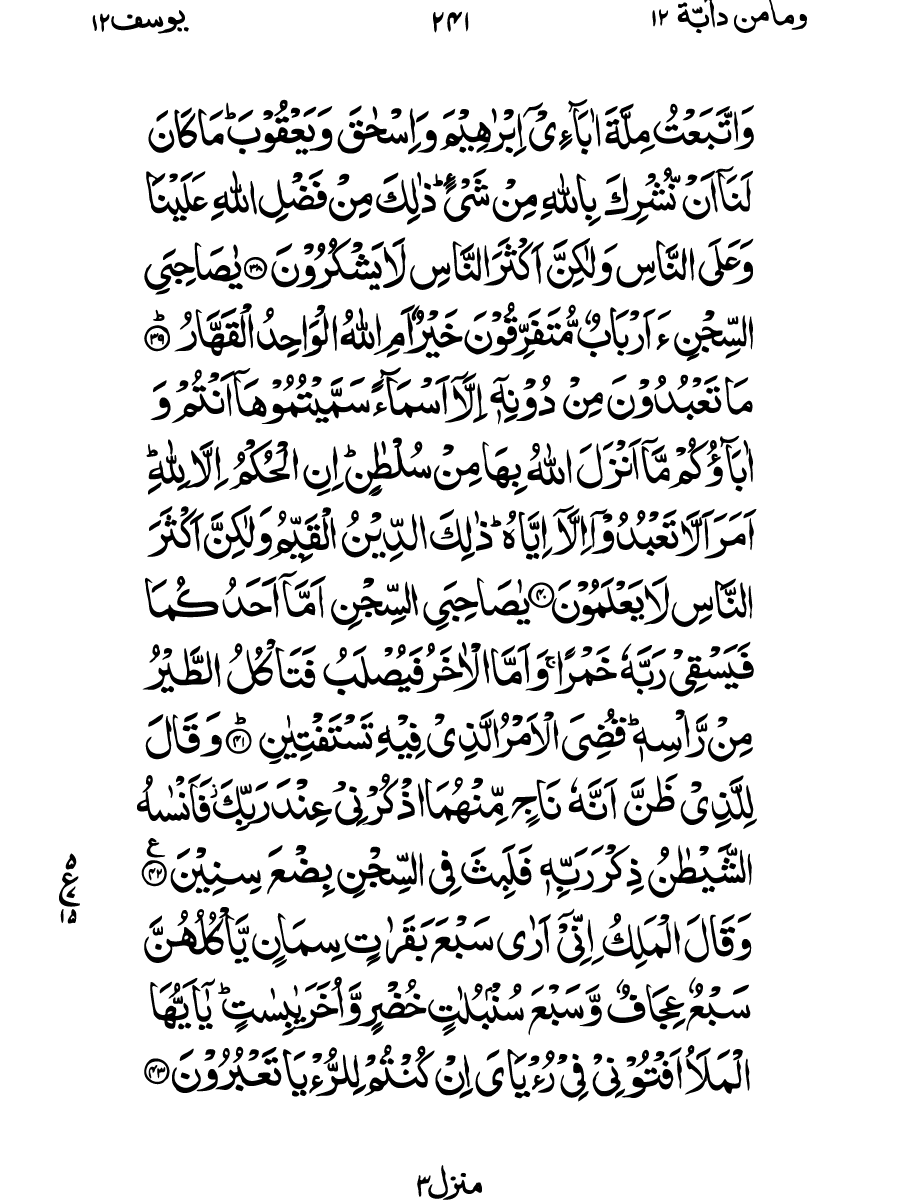 ومامن دآبّة ١٢
٢٤١
يوسف١٢
وَاتَّبَعْتُ مِلَّةَ اٰبَآءِیْۤ اِبْرٰهِیْمَ وَاِسْحٰقَ وَیَعْقُوْبَ ؕ مَا كَانَ
لَنَاۤ اَنْ نُّشْرِكَ بِاللّٰهِ مِنْ شَیْءٍ ؕ ذٰلِكَ مِنْ فَضْلِ اللّٰهِ عَلَیْنَا
وَعَلَی النَّاسِ وَلٰكِنَّ اَكْثَرَ النَّاسِ لَا یَشْكُرُوْنَ ﴿۳۸﴾ یٰصَاحِبَیِ
السِّجْنِ ءَاَرْبَابٌ مُّتَفَرِّقُوْنَ خَیْرٌ اَمِ اللّٰهُ الْوَاحِدُ الْقَهَّارُ ﴿ؕ۳۹﴾
مَا تَعْبُدُوْنَ مِنْ دُوْنِهٖۤ اِلَّاۤ اَسْمَآءً سَمَّیْتُمُوْهَاۤ اَنْتُمْ وَ
اٰبَآؤُكُمْ مَّاۤ اَنْزَلَ اللّٰهُ بِهَا مِنْ سُلْطٰنٍ ؕ اِنِ الْحُكْمُ اِلَّا لِلّٰهِ ؕ
اَمَرَ اَلَّا تَعْبُدُوْۤا اِلَّاۤ اِیَّاهُ ؕ ذٰلِكَ الدِّیْنُ الْقَیِّمُ وَلٰكِنَّ اَكْثَرَ
النَّاسِ لَا یَعْلَمُوْنَ ﴿۴۰﴾ یٰصَاحِبَیِ السِّجْنِ اَمَّاۤ اَحَدُكُمَا
فَیَسْقِیْ رَبَّهٗ خَمْرًا ۚ وَاَمَّا الْاٰخَرُ فَیُصْلَبُ فَتَاْكُلُ الطَّیْرُ
مِنْ رَّاْسِهٖ ؕ قُضِیَ الْاَمْرُ الَّذِیْ فِیْهِ تَسْتَفْتِیٰنِ ﴿ؕ۴۱﴾ وَقَالَ
لِلَّذِیْ ظَنَّ اَنَّهٗ نَاجٍ مِّنْهُمَا اذْكُرْنِیْ عِنْدَ رَبِّكَ ؗ فَاَنْسٰىهُ
الشَّیْطٰنُ ذِكْرَ رَبِّهٖ فَلَبِثَ فِی السِّجْنِ بِضْعَ سِنِیْنَ ﴿۴۲﴾ ع
۵ ع ۱۵
وَقَالَ الْمَلِكُ اِنِّیْۤ اَرٰی سَبْعَ بَقَرٰتٍ سِمَانٍ یَّاْكُلُهُنَّ
سَبْعٌ عِجَافٌ وَّسَبْعَ سُنْۢبُلٰتٍ خُضْرٍ وَّاُخَرَ یٰبِسٰتٍ ؕ یٰۤاَیُّهَا
الْمَلَاُ اَفْتُوْنِیْ فِیْ رُءْیَایَ اِنْ كُنْتُمْ لِلرُّءْیَا تَعْبُرُوْنَ ﴿۴۳﴾
منزل۳